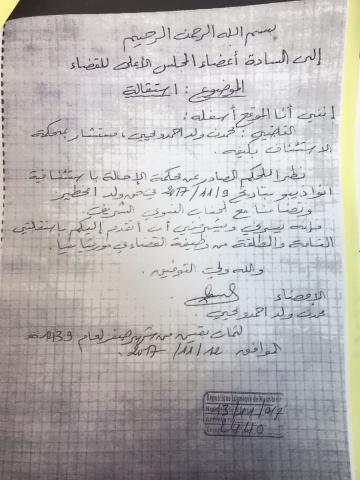 بسم الله الرحمن الرحيم
إلى السادة أعضاء المجلس الأعلى للقضاء
الموضوع : استقالة
إنني أنا الموقع أسفله :
القاضي : محمدن ولد احمدو يحيى ، مستشار بمحكمة
الاستئناف بكيفه .
نظرا للحكم الصادر عن محكمة الإحالة باستئنافية
انواذيبو بتاريخ 9/11/2017 في حق ولد امخيطير
وتضامنا مع الجناب النبوي الشريف
فإنه يسرني ويشرفني أن أتقدم إليكم باستقالتي
التامة والمطلقة من وظيفة القضاء في موريتانيا .
والله ولي التوفيق
الإمضاء
محمدن ولد احمدو يحيى
لثمان بقين من شهر صفر لعام 1439 هـ
الموافق 12/11/2017 .
République Islamique de Mauritanie
13/11/017